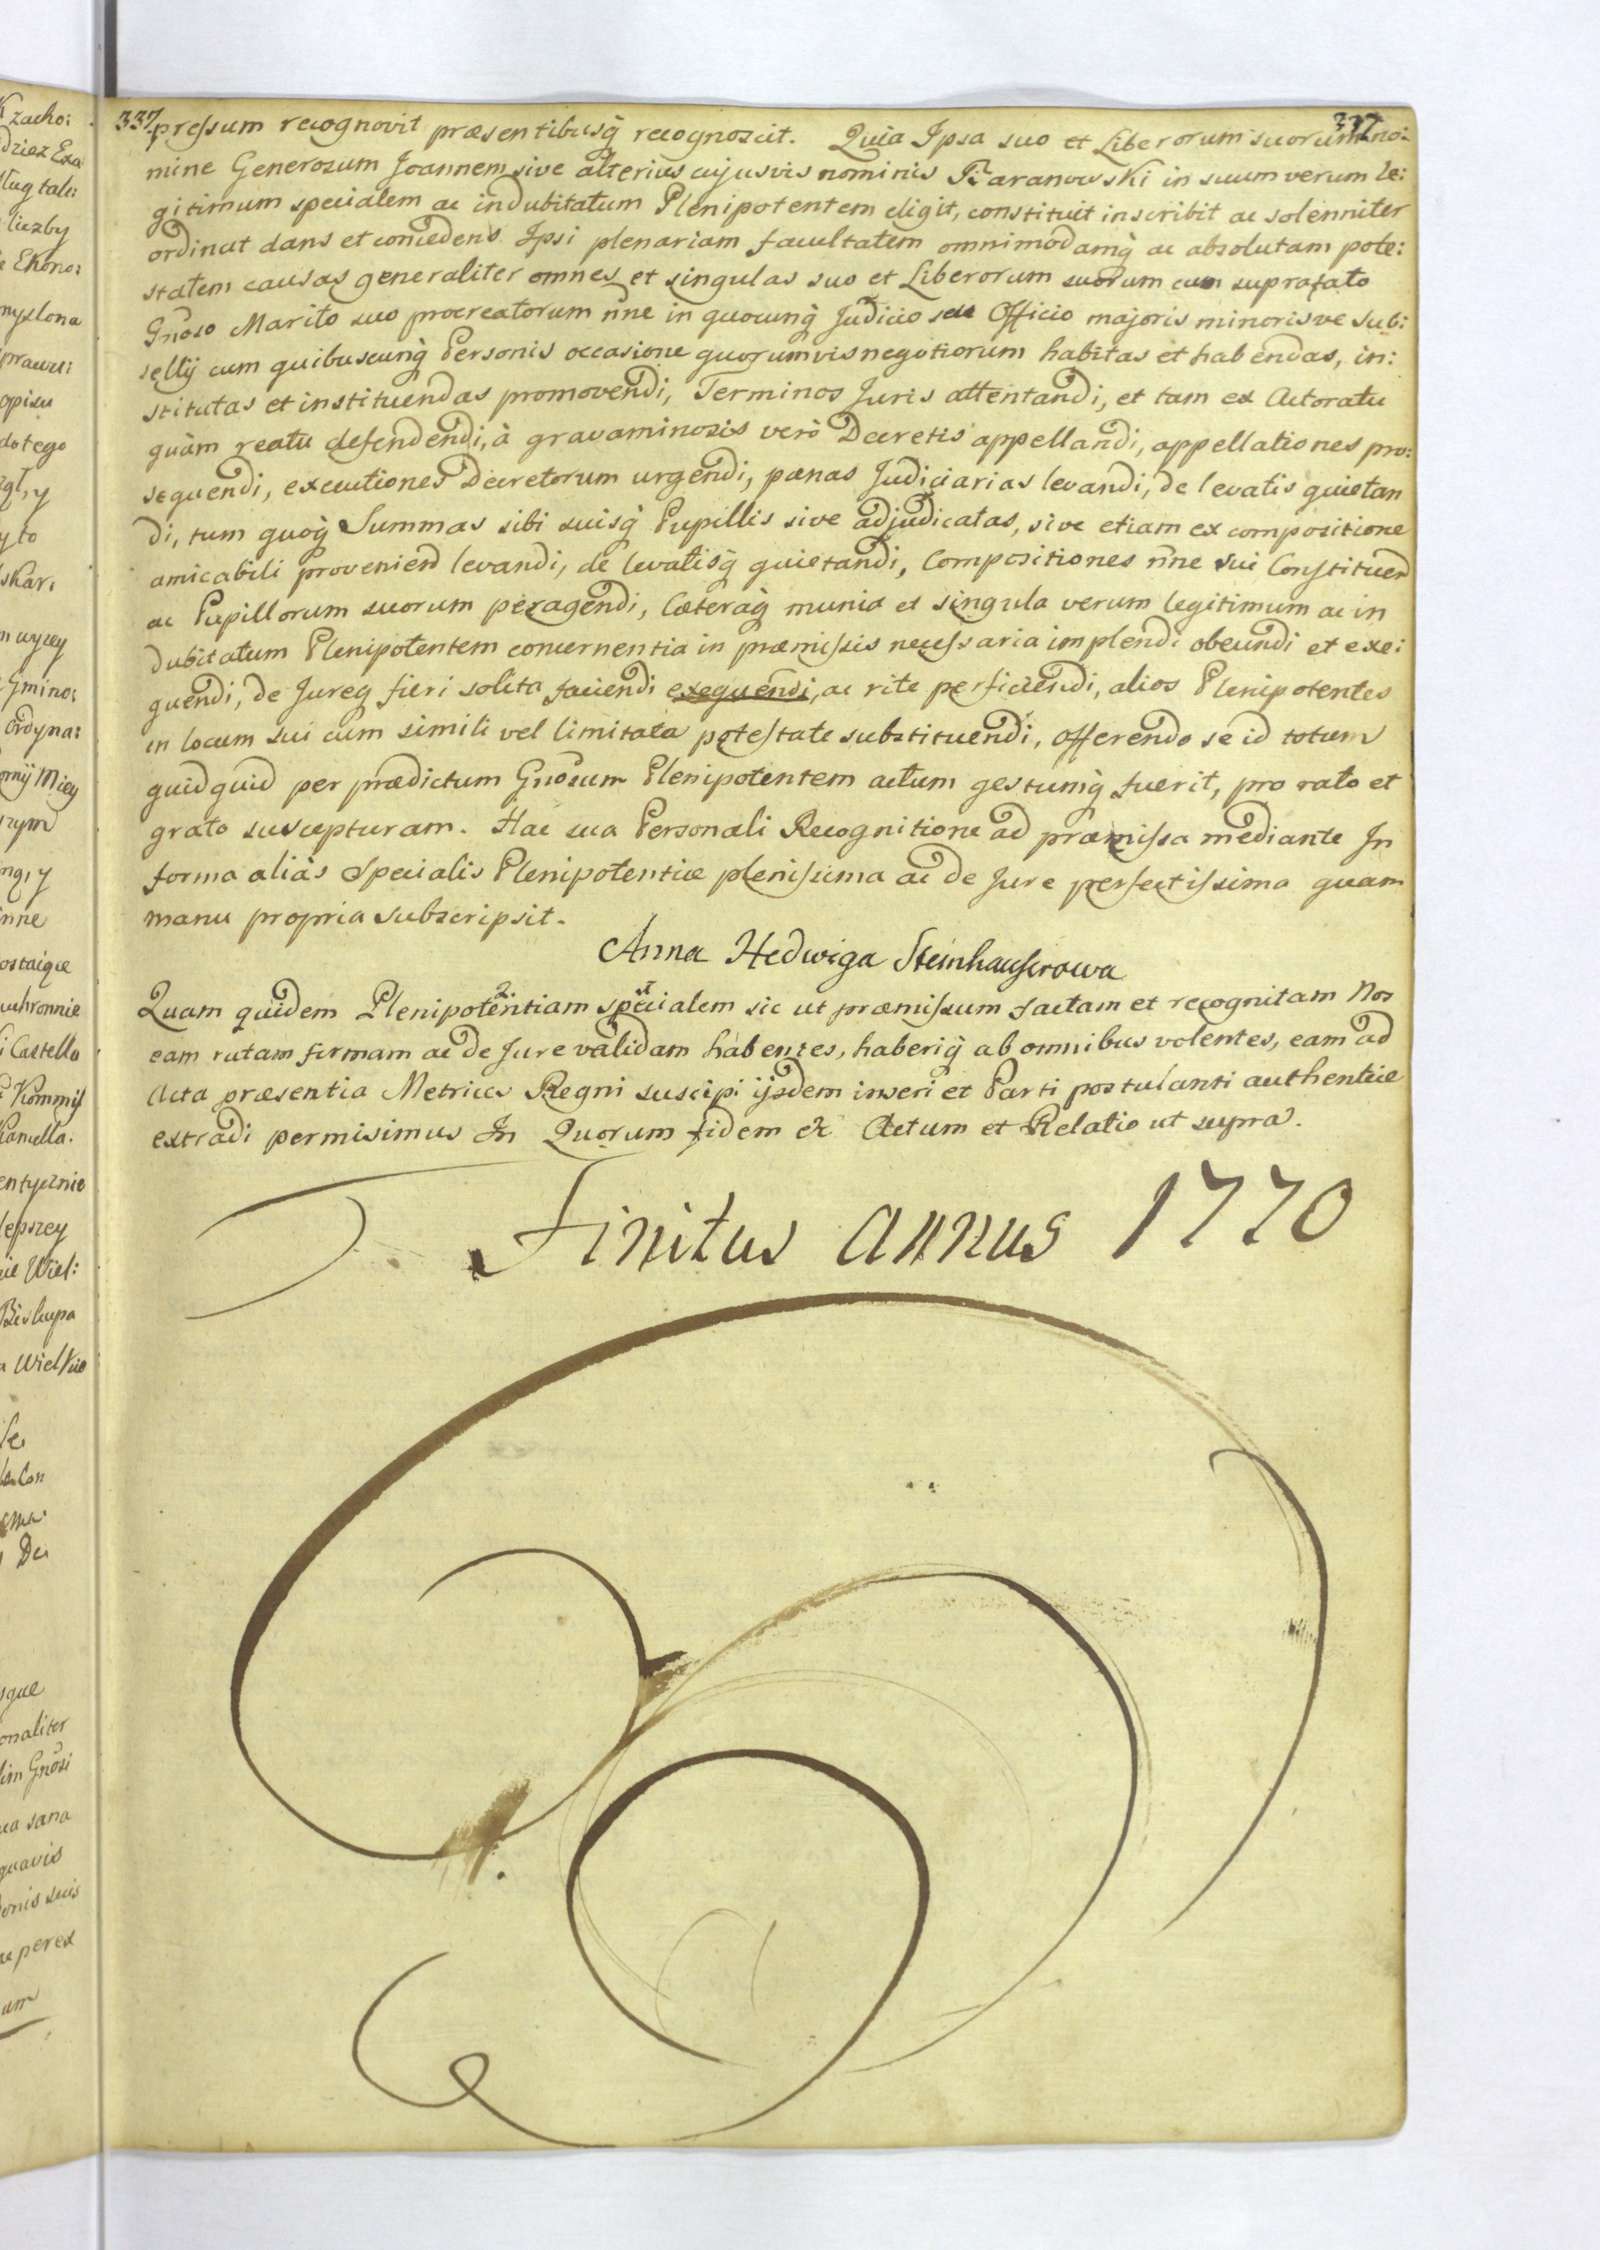 337 337
pressum recognovit præsentibusq̃ recognoscit. Quia Ipsa suo et Liberorum suorum no:
mine Generosum Joannem sive alterius cujusvis nominis Baranowski in suum verum le:
gitimum specialem ac indubitatum Plenipotentem eligit, constituit inscribit ac solenniter
ordinat dans et concedens Ipsi plenariam facultatem omnimodamq̃ ac absolutam pote:
statem causas generaliter omnes et singulas suo et Liberorum suorum cum suprafato
Gnoso Marito suo procreatorum ñne in quocunq̃ Judicio seu Officio majoris minorisve Sub:
sellij cum quibuscunq̃ Personis occasione quorumvis negotiorum habitas et habendas, in:
stitutas et instituendas promovendi, Terminos Juris attentandi, et tam ex Actoratu
quàm reatu defendendi, à gravaminosis verò Decretis appellandi, appellationes pro:
sequendi, executiones Decretorum urgendi, pænas Judiciarias levandi, de levatis quietan
di, tum quoq̃ Summas sibi suisq̃ Pupillis sive adjudicatas, sive etiam ex compositione
amicabili proveniend levandi, de levatisq̃ quietandi, Compositiones ñne sui Constituend
ac Pupillorum suorum peragendi, Cæteraq̃ munia et singula verum legitimum ac in
dubitatum Plenipotentem concernentia in præmissis necessaria implendi obeundi et exe:
quendi, de Jureq̃ fieri solita faciendi exequendi, ac rite perficiendi, alios Plenipotentes
in locum sui cum simili vel limitata potestate substituendi, offerendo se id totum
quidquid per prædictum Gnosum Plenipotentem actum gestumq̃ fuerit, pro rato et
grato suscepturam. Hac sua Personali Recognitione ad præmissa mediante In
forma aliàs Specialis Plenipotentiæ plenissima ac de Jure perfectissima quam
manu propria subscripsit.
Anna Hedwiga Steinhauserowa
Quam quidem Plenipotentiam specialem sic ut præmissum factam et recognitam Nos
eam ratam firmam ac de Jure validam habentes, haberiq̃ ab omnibus volentes, eam ad
Acta præsentia Metrices Regni suscipi ijsdem inseri et Parti postulanti authentice
extradi permisimus In Quorum fidem &c Actum et Relatio ut supra.
Finitus annus 1770